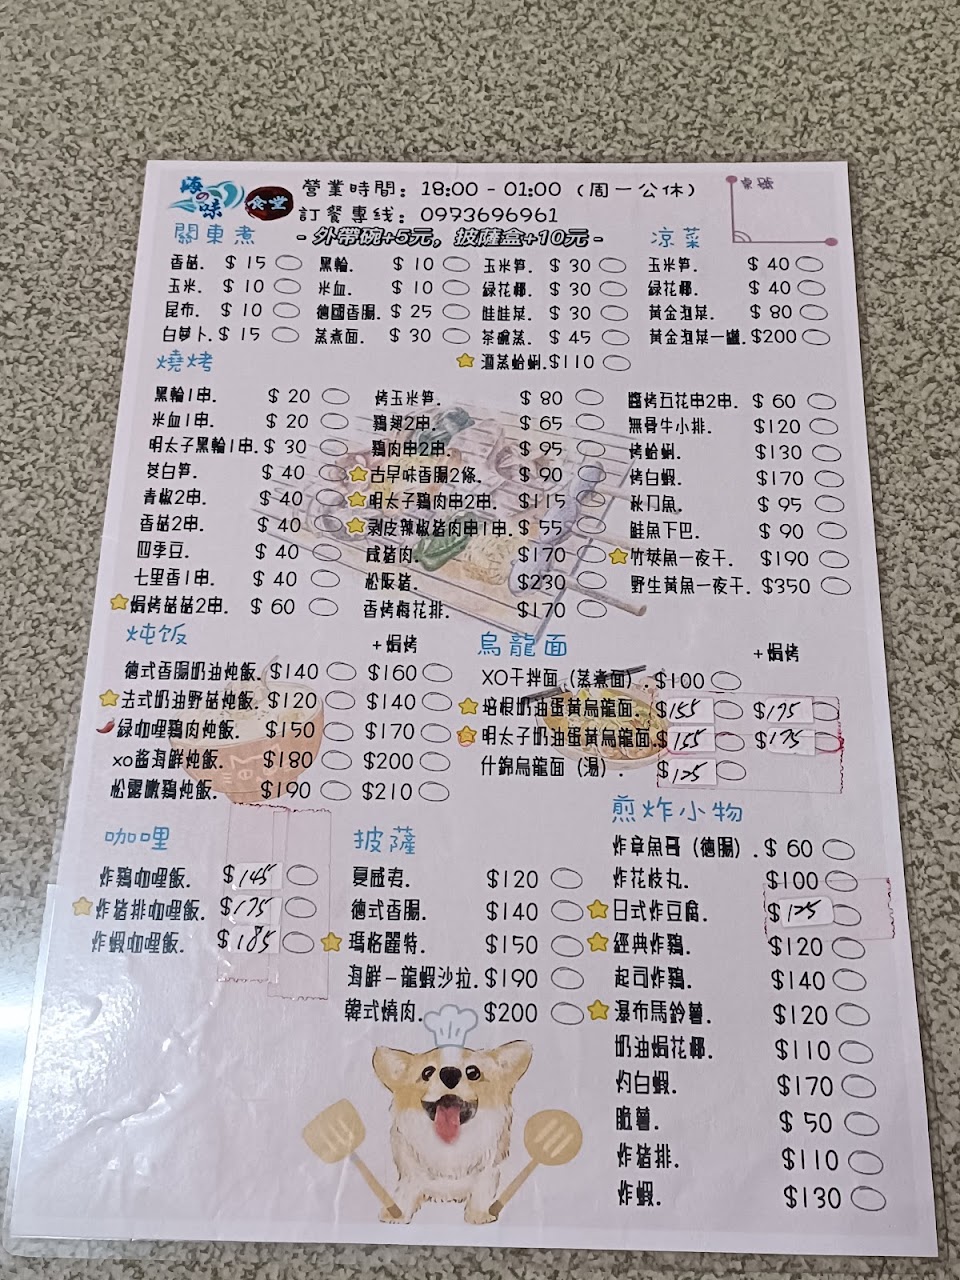 海の味 食堂
營業時間：18:00 - 01:00（周一公休）
訂餐專线：0973696961
- 外帶碗+5元，披薩盒+10元 -
桌號
關東煮
香菇. $ 15
玉米. $ 10
昆布. $ 10
白萝卜. $ 15
黑輪. $ 10
米血. $ 10
德國香腸. $ 25
蒸煮面. $ 30
玉米笋. $ 30
绿花椰. $ 30
娃娃菜. $ 30
茶碗蒸. $ 45
酒蒸蛤蜊. $110
凉菜
玉米笋. $ 40
绿花椰. $ 40
黃金泡菜. $ 80
黃金泡菜一罐. $200
燒烤
黑輪1串. $ 20
米血1串. $ 20
明太子黑輪1串. $ 30
茭白笋. $ 40
青椒2串. $ 40
香菇2串. $ 40
四季豆. $ 40
七里香1串. $ 40
焗烤菇菇2串. $ 60
烤玉米笋. $ 80
鷄翅2串. $ 65
鷄肉串2串. $ 95
古早味香腸2條. $ 90
明太子鷄肉串2串. $115
剥皮辣椒猪肉串1串. $ 55
咸猪肉. $170
松阪猪. $230
香烤梅花排. $170
醬烤五花串2串. $ 60
無骨牛小排. $120
烤蛤蜊. $130
烤白蝦. $170
秋刀魚. $ 95
鮭魚下巴. $ 90
竹莢魚一夜干. $190
野生黃魚一夜干. $350
炖饭
+焗烤
德式香腸奶油炖飯. $140 $160
法式奶油野菇炖飯. $120 $140
緑咖哩鷄肉炖飯. $150 $170
xo酱海鮮炖飯. $180 $200
松露嫩鷄炖飯. $190 $210
烏龍面
+焗烤
XO干拌面（蒸煮面）. $100
培根奶油蛋黃烏龍面. $155 $175
明太子奶油蛋黃烏龍面. $155 $175
什錦烏龍面（湯）. $125
咖哩
炸鷄咖哩飯. $145
炸猪排咖哩飯. $175
炸蝦咖哩飯. $185
披薩
夏威夷. $120
德式香腸. $140
瑪格麗特. $150
海鮮－龍蝦沙拉. $190
韓式燒肉. $200
煎炸小物
炸章魚哥（德腸）. $ 60
炸花枝丸. $100
日式炸豆腐. $125
經典炸鷄. $120
起司炸鷄. $140
瀑布馬鈴薯. $120
奶油焗花椰. $110
灼白蝦. $170
脆薯. $ 50
炸猪排. $110
炸蝦. $130